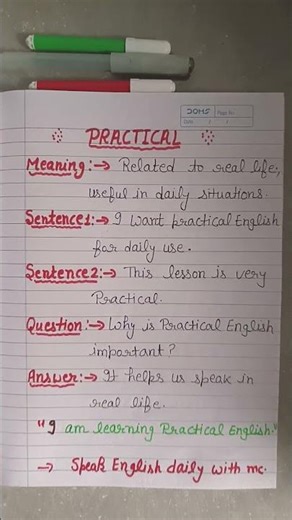 Date
PRACTICAL
Meaning:→ Related to real life,
useful in daily situations.
Sentence1:→ I want practical English
for daily use.
Sentence2:→ This lesson is very
Practical.
Question:→ Why is Practical English
important?
Answer:→ It helps us speak in
real life.
"I am learning Practical English."
→ Speak English daily with me.